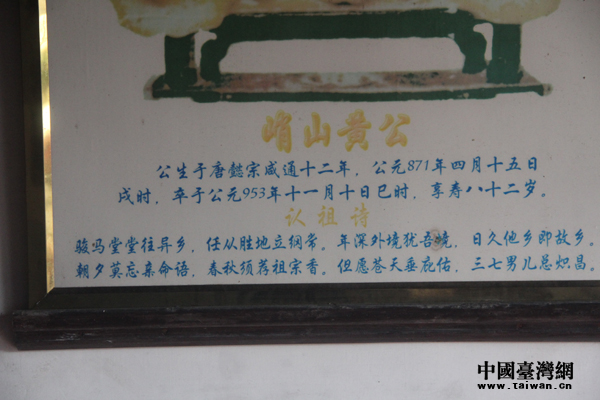 峭山黄公
公生于唐懿宗咸通十二年，公元871年四月十五日
戌时，卒于公元953年十一月十日巳时，享寿八十二岁。
认祖诗
骏马堂堂往异乡，任从胜地立纲常。年深外境犹吾境，日久他乡即故乡。
朝夕莫忘亲命语，春秋须荐祖宗香。但愿苍天垂庇佑，三七男儿总炽昌。
中國臺灣網
www.taiwan.cn